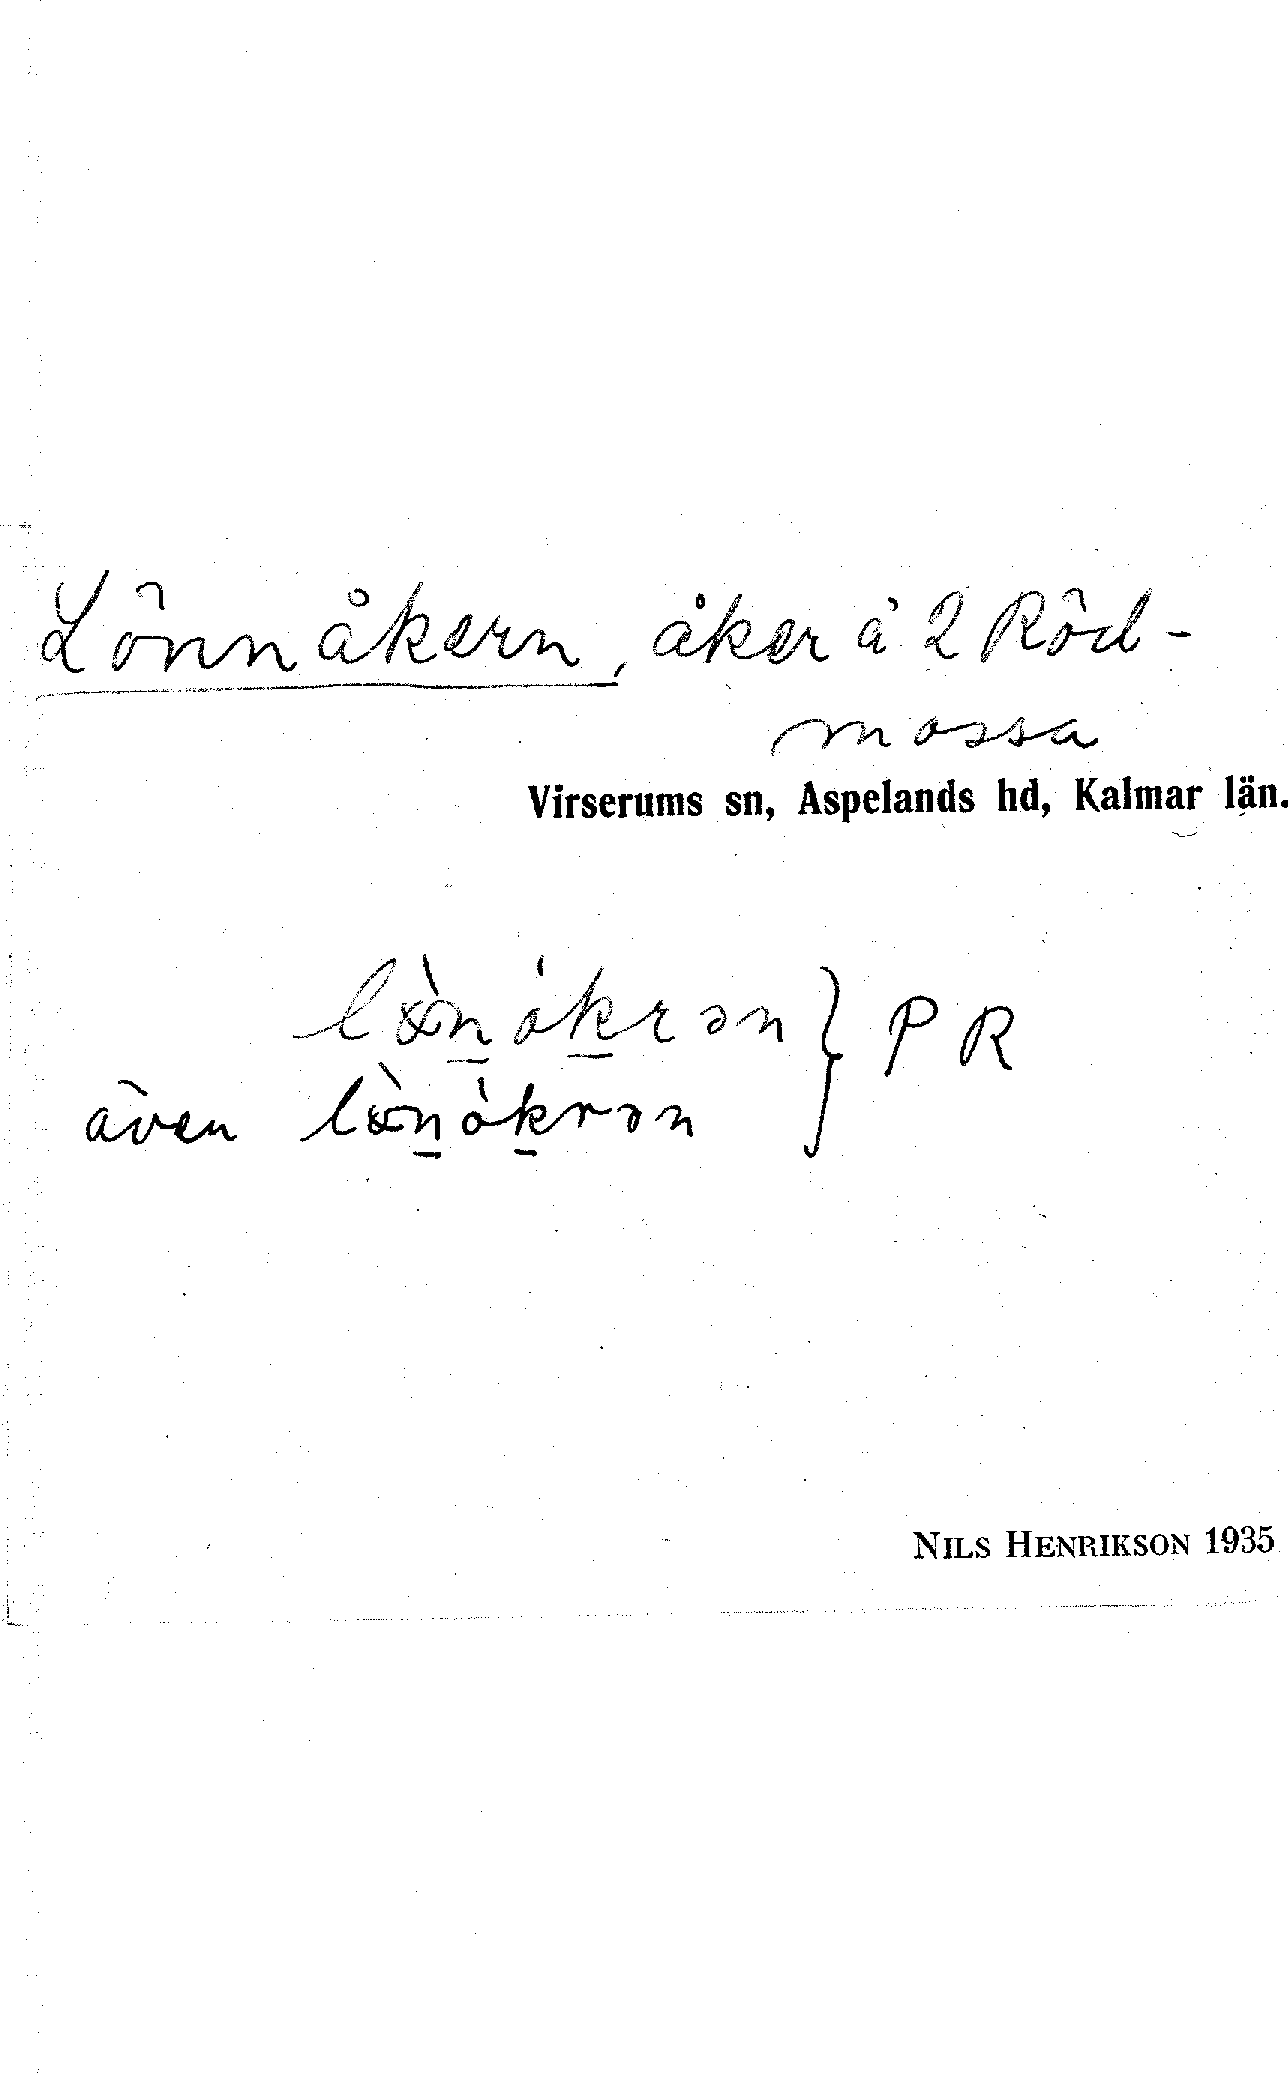 Lönnåkern, åker å 2 Röd-
mossa
Virserums sn, Aspelands hd, Kalmar län.
lö̀n̲ȯk̲rən } PR
även lö̀n̲ȯk̲rən
NILS HENRIKSON 1935